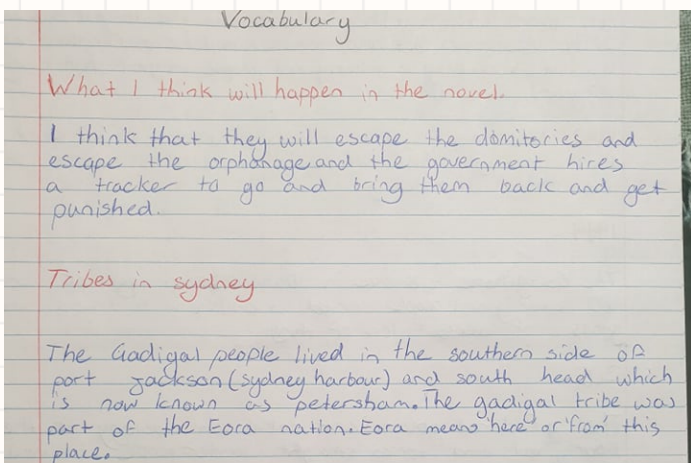 Vocabulary
What I think will happen in the novel.
I think that they will escape the domitories and
escape the orphanage and the government hires
a tracker to go and bring them back and get
punished.
Tribes in sydney
The Gadigal people lived in the southern side of
port Jackson (sydney harbour) and south head which
is now known as petersham. The gadigal tribe was
part of the Eora nation. Eora means 'here' or 'from' this
place.